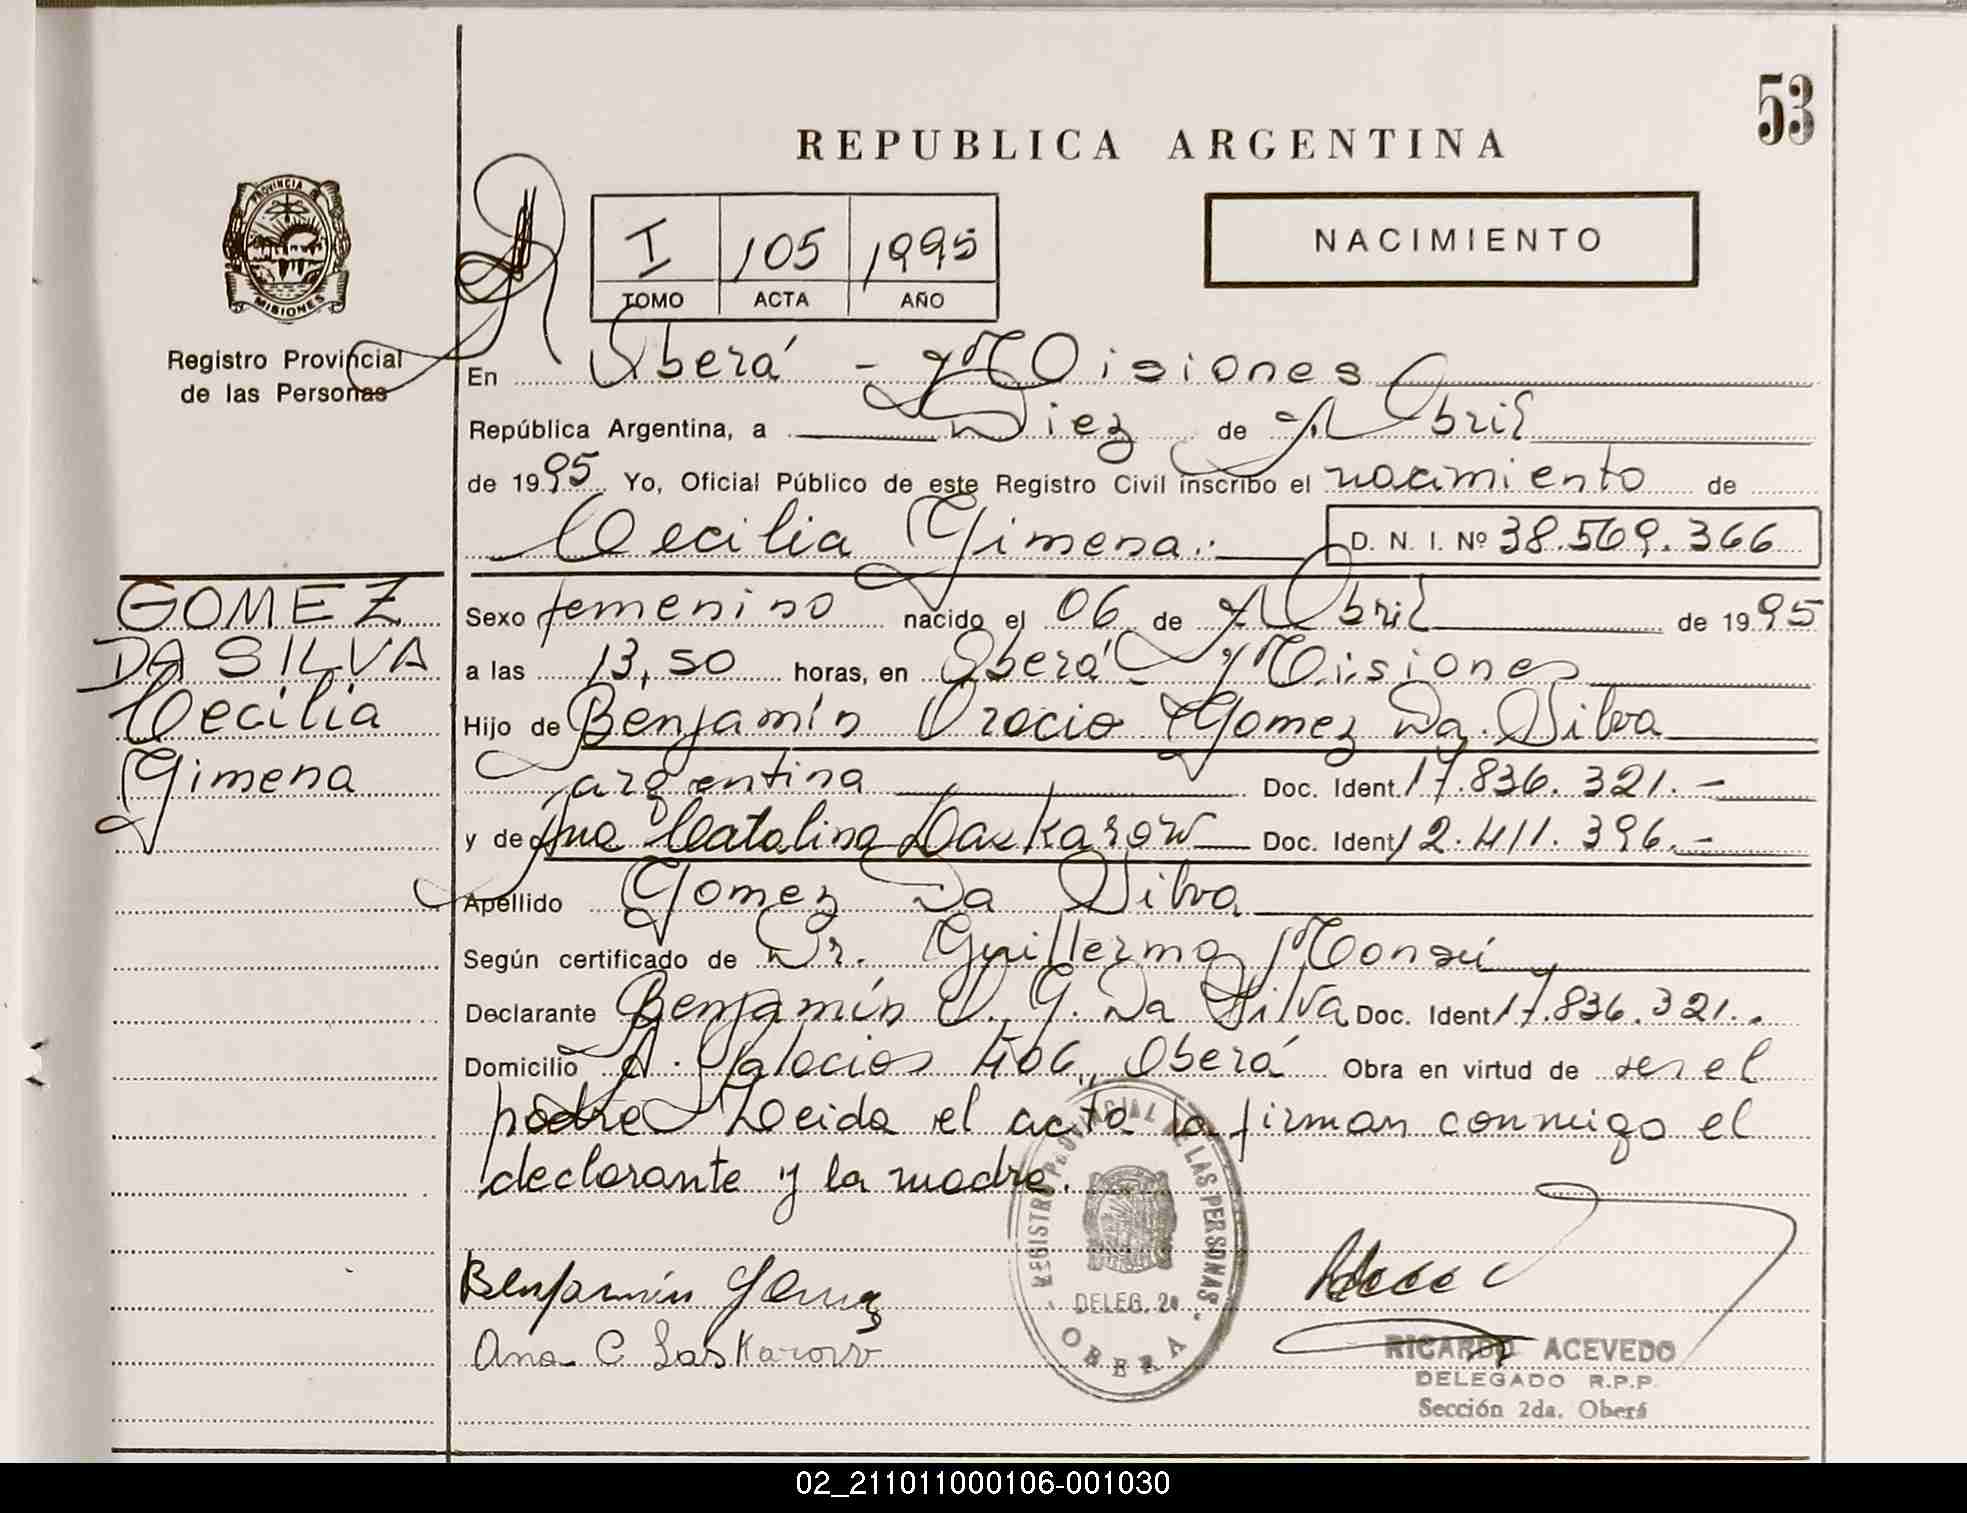 53
REPUBLICA ARGENTINA
PROVINCIA
MISIONES
Registro Provincial
de las Personas
I 105 1995
TOMO ACTA AÑO
NACIMIENTO
En Oberá - Misiones
República Argentina, a Diez de Abril
de 1995 Yo, Oficial Público de este Registro Civil inscribo el nacimiento de
Cecilia Gimena.
D. N. I. Nº 38.569.366
GOMEZ
DA SILVA
Cecilia
Gimena
Sexo femenino nacido el 06 de Abril de 1995
a las 13,50 horas, en Oberá - Misiones
Hijo de Benjamín Orocio Gomez Da Silva
argentina Doc. Ident. 17.836.321.-
y de Ana Catalina Laskarow Doc. Ident. 12.411.396.-
Apellido Gomez Da Silva
Según certificado de Dr. Guillermo Monsú
Declarante Benjamín O. G. Da Silva Doc. Ident 17.836.321..
Domicilio A. Palacios 406, Oberá Obra en virtud de ser el
padre Leida el acta la firman conmigo el
declarante y la madre.
REGISTRO PROVINCIAL DE LAS PERSONAS
DELEG. 2a
OBERA
Benjamín Gomez
Ana C Laskarow
RICARDO ACEVEDO
DELEGADO R.P.P.
Sección 2da. Oberá
02_211011000106-001030